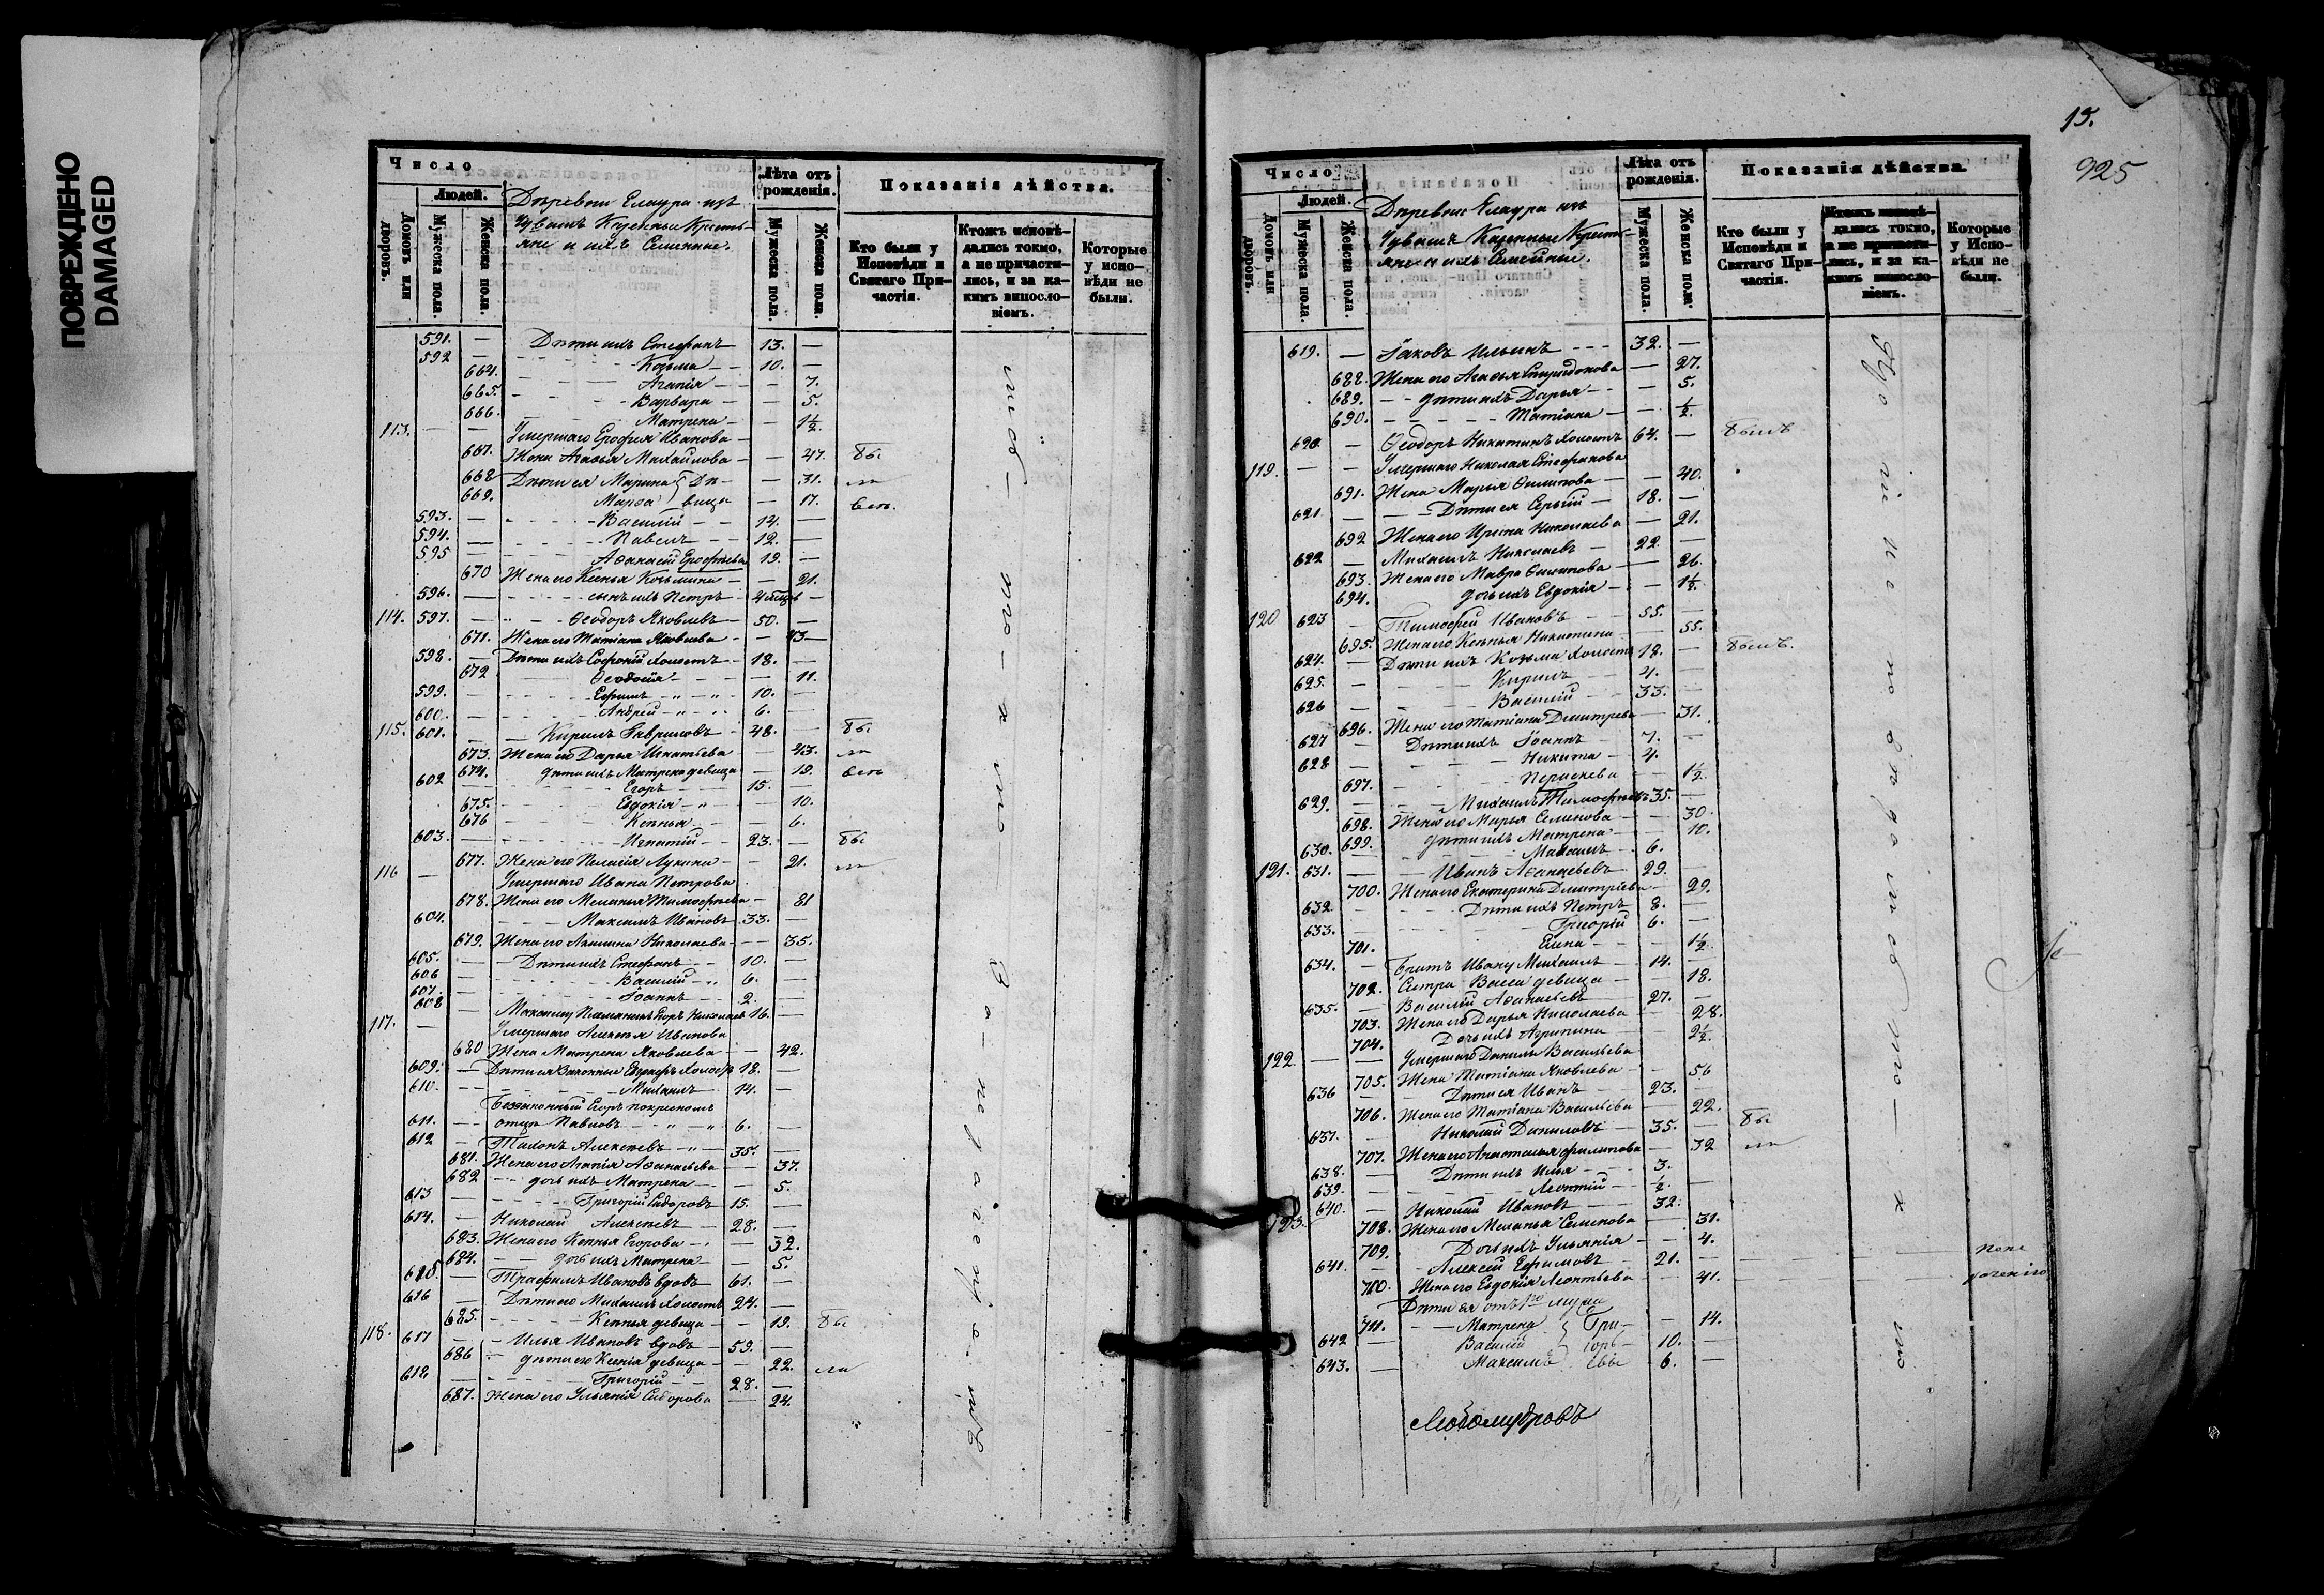 ПОВРЕЖДЕНО
DAMAGED
Число
Людей.
Домовъ или дворовъ.
Мужеска пола.
Женска пола.
Деревни Елаура изъ
Чувашъ Казенные Кресть-
яне и ихъ Семейные.
Лѣта отъ рожденія.
Мужеска пола.
Женска пола.
Показанія дѣйства.
Кто были у Исповѣди и Святаго При-частія.
Ктожъ исповѣ-дались токмо, а не причасти-лись, и за ка-кимъ виносло-віемъ.
Которые у испо-вѣди не были.
591. — Дѣти ихъ Стефанъ 13. —
592 — Козьма 10. —
664. Агапія — 7.
665. Варвара — 5.
666. Матрена — 1½.
113. — — Умершаго Ерофея Иванова
667. Жена Агафья Михайлова — 47. бы
668 Дѣти ея Марина } Дѣ- — 31. ли
669. Марфа } вица — 17. всѣ.
593. — Василій 14. —
594. — Павелъ 12. —
595 — Афанасій Ерофѣевъ 19. —
670 Жена его Ксенья Козьмина — 21.
596. — сынъ ихъ Петръ —
114. 597. — Ѳеодоръ Яковлевъ 50. —
671. Жена его Татіана Яковлева — 43
598. — Дѣти ихъ Софроній Холостъ 18. —
672 Ѳеодосія — 11.
599. — Ефимъ 10. —
600. — Андрей 6. —
115. 601. — Кирилъ Гавриловъ 48. — бы
673. Жена его Дарья Игнатьева — 43. ли
674. дѣти ихъ Матрена девица — 19. всѣ
602 — Егоръ 15. —
675. Евдокія — 10.
676 Ксенья — 6.
603. — Игнатій 23. — бы
677. Жена его Пелагія Лукина — 21. ли
116 — Умершаго Ивана Петрова
678. Жена его Меланья Тимофѣева — 81
604. — Максимъ Ивановъ 33. —
679. Жена его Акилина Николаева — 35.
605. — Дѣти ихъ Стефанъ 10. —
606 — Василій 6. —
607. — Іоаннъ 2. —
608 — Максиму Племянникъ Егоръ Николаевъ 16. —
117. — Умершаго Алексѣя Иванова
680 Жена Матрена Яковлева — 42.
609. — Дѣти ея Законные Евграфъ Холостъ 18. —
610. — Михаилъ 14. —
Беззаконный Егоръ по крестномъ
611. — отцѣ Павловъ 6. —
612 — Тихонъ Алексѣевъ 35. —
681. Жена его Агапія Афанасьева — 37.
682 дочь ихъ Матрена — 5.
613 — Григорій Сидоровъ 15. —
614. — Николай Алексѣевъ 28. —
683. Жена его Ксенья Егорова — 32.
684. дочь ихъ Матрена — 5.
615. — Трофимъ Ивановъ вдовъ 61. —
616 — Дѣти его Михаилъ Холостъ 24. —
685. Ксенья девица — 19. бы
118. 617 — Илья Ивановъ вдовъ 59. —
686 дѣти его Ксенія девица — 22. ли
618 — Григорій 28. —
687. Жена его Ульянія Сидорова — 24.
15.
925
Число
Людей.
Домовъ или дворовъ.
Мужеска пола.
Женска пола.
Деревни Елаура изъ
Чувашъ Казенные Кресть-
яне и ихъ Семейные.
Лѣта отъ рожденія.
Мужеска пола.
Женска пола.
Показанія дѣйства.
Кто были у Исповѣди и Святаго При-частія.
Ктожъ исповѣ-дались токмо, а не причасти-лись, и за ка-кимъ виносло-віемъ.
Которые у Испо-вѣди не были.
619. — Іаковъ Ильинъ 32. —
688. Жена его Агафья Спиридонова — 27.
689. дѣти ихъ Дарья — 5.
690. Татіана — ½.
620 — Ѳеодоръ Никитинъ Холостъ 64. — былъ
119. — — Умершаго Николая Стефанова
691. Жена Марья Филипова — 40.
621. — Дѣти ея Сергій 18. —
692 Жена его Ирина Николаева — 21.
622 — Михаилъ Николаевъ 22. —
693. Жена его Мавра Филипова — 26.
694. дочь ихъ Евдокія — 1½.
120 623 — Тимофей Ивановъ 55. —
695. Жена его Ксенья Никитина — 55.
624. — Дѣти ихъ Козьма Холостъ 18. — былъ.
625. — Кирилъ 4. —
626 — Василій 33. —
696. Жена его Татіана Дмитрева — 31.
627 — Дѣти ихъ Іоаннъ 7. —
628 — Никита 4.
697. Перасковья — 1½
629. — Михаилъ Тимофѣевъ 35. —
698. Жена его Марья Семенова — 30.
699. дѣти ихъ Матрена — 10.
630. — Михаилъ 6.
121. 631. — Иванъ Афанасьевъ 29. —
700. Жена его Екатерина Дмитріева — 29.
632. Дѣти ихъ Петръ 8. —
633. — Григорій 6. —
701. Елена — 1½
634. — Братъ Ивану Михаилъ 14. —
702. Сестра Васса девица — 18.
635. — Василій Афанасьевъ 27. —
703. Жена его Дарья Николаева — 28.
704. Дочь ихъ Агрипина — 2½.
122 — — Умершаго Данилы Васильева
705. Жена Татіана Яковлева — 56
636 — Дѣти ея Иванъ 23. —
706. Жена его Татіана Васильева — 22.
637. — Николай Даниловъ 35. — бы
707. Жена его Анастасья Филипова — 32 ли
638. — Дѣти ихъ Илья 3.
639. — Леонтій ½. —
123. 640. — Николай Ивановъ 32. —
708. Жена его Меланья Семенова — 31.
709. Дочь ихъ Ульянія — 4.
641. — Алексѣй Ефимовъ 21. —
710. Жена его Евдокія Леонтьева — 41.
Дѣти ея отъ 1го мужа
711. Матрена } Гри- — 14.
642 — Василій } горь- 10. —
643. — Максимъ } евы 6. —
Любомудровъ